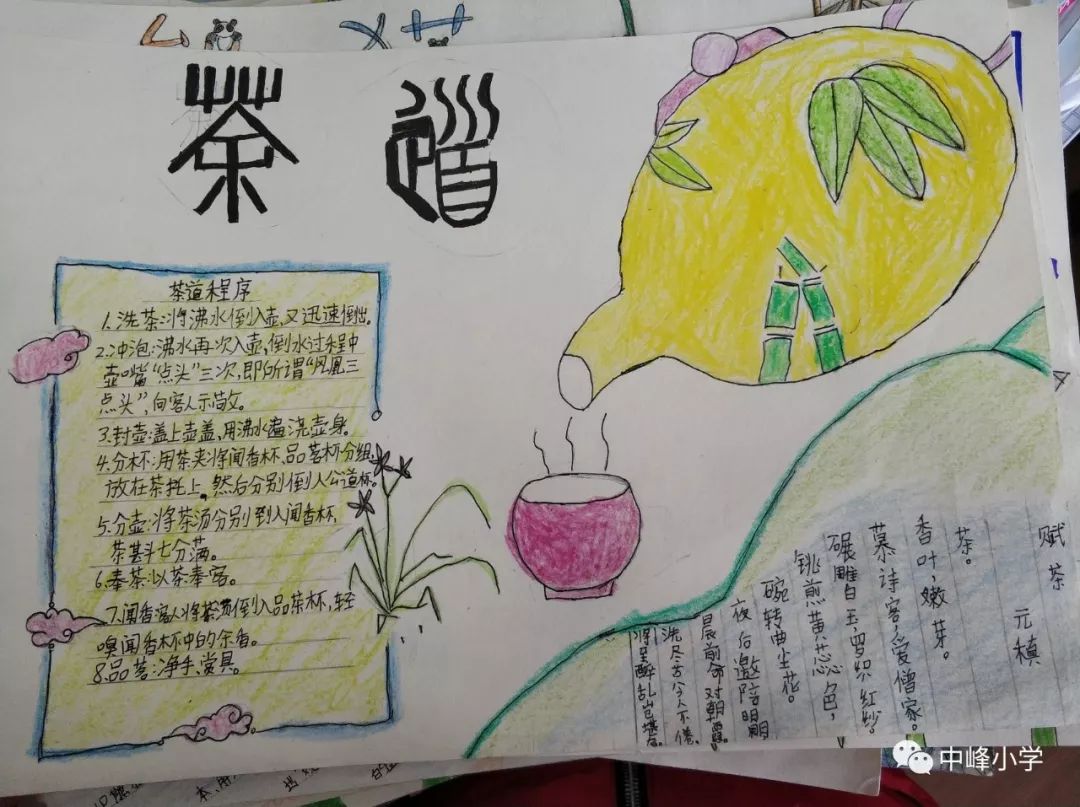 茶道
茶道程序
1.洗茶:将沸水倒入壶,又迅速倒出。
2.冲泡:沸水再次入壶,倒水过程中
壶嘴“点头”三次,即所谓“凤凰三
点头”,向客人示敬。
3.封壶:盖上壶盖,用沸水遍浇壶身。
4.分杯:用茶夹将闻香杯、品茗杯分组,
放在茶托上。然后分别倒入公道杯。
5.分壶:将茶汤分别到入闻香杯,
茶甚斗七分满。
6.奉茶:以茶奉客。
7.闻香:客人将茶汤倒入品茶杯,轻
嗅闻香杯中的余香。
8.品茗:净手、赏具。
赋茶
元稹
茶。
香叶,嫩芽。
慕诗客,爱僧家。
碾雕白玉,罗织红纱。
铫煎黄蕊色,
碗转曲尘花。
夜后邀陪明月
晨前命对朝霞。
洗尽古今人不倦,
将至醉乱岂堪夸。
中峰小学